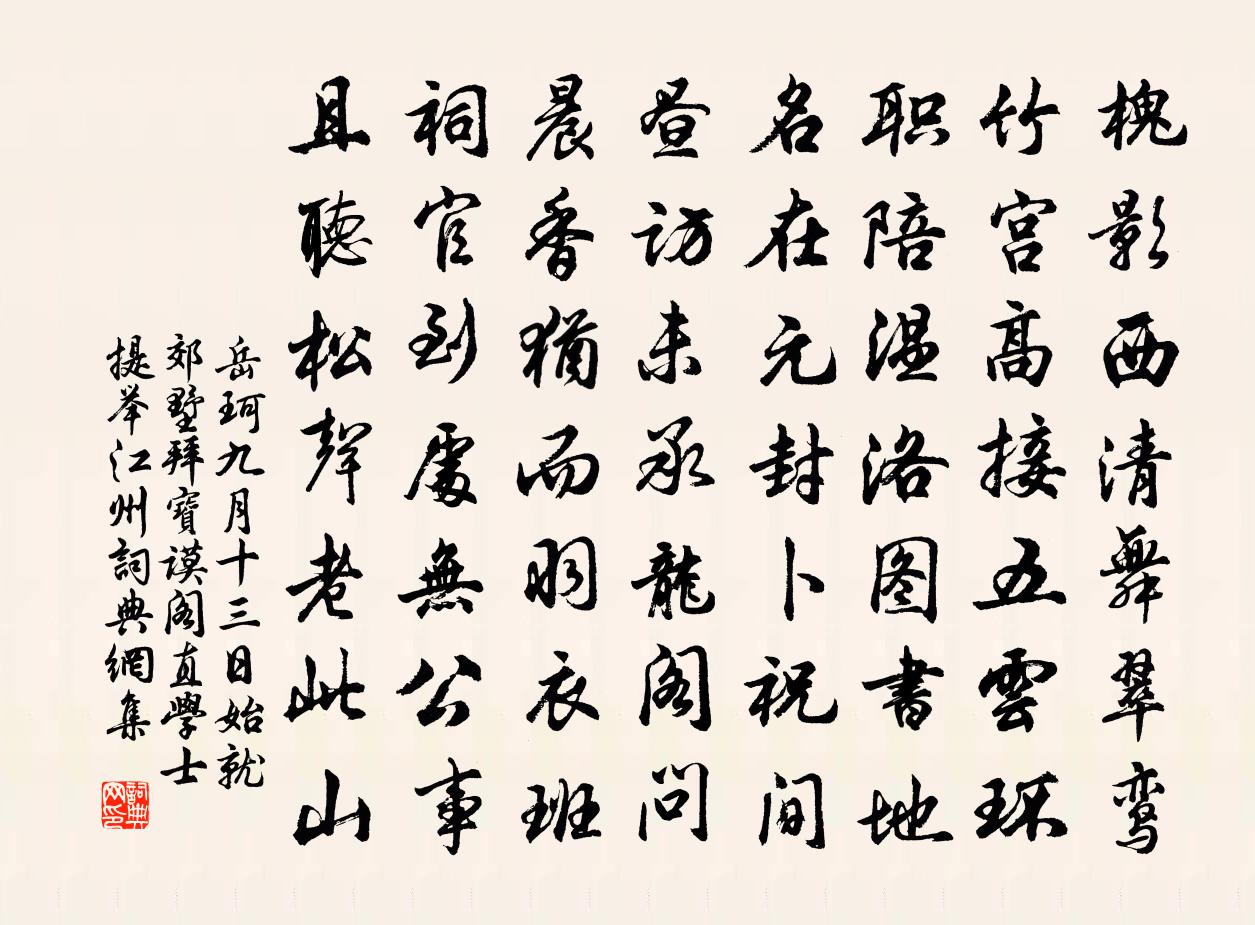 槐影西清舞翠鸾
竹宫高接五雲环
职陪温洛图書地
名在元封卜祝间
昼访未承龍阁问
晨香猶而羽衣班
祠官到處無公事
且聽松聲老此山
岳珂九月十三日始就
郊墅拜寶谟阁直學士
提举江州詞典網集
詞典网印